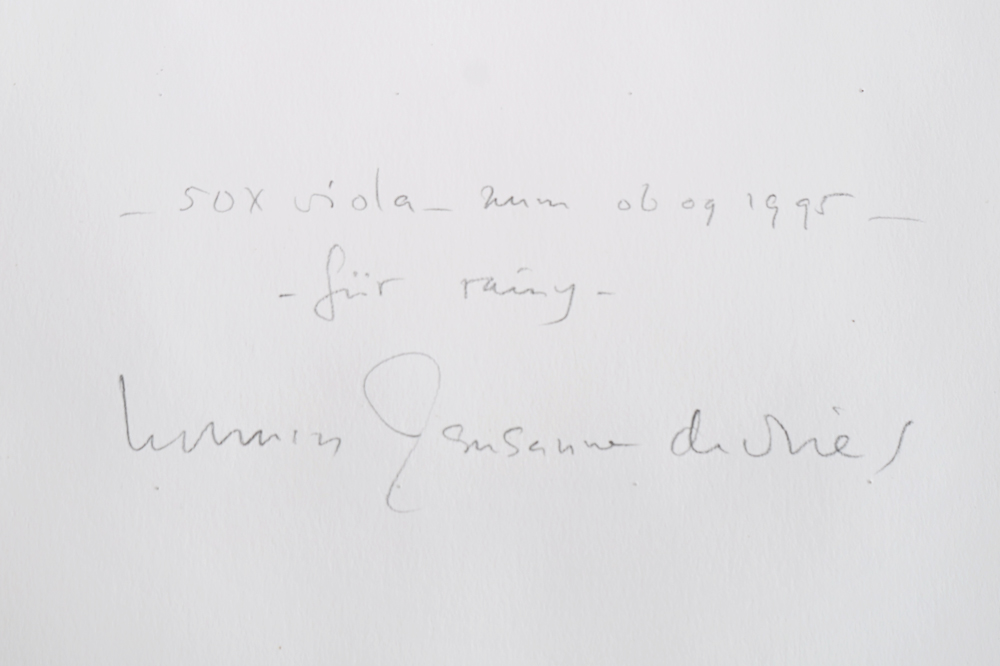 – 50x viola – zum 06 09 1995 –
– für rainy –
herman & susanne de vries